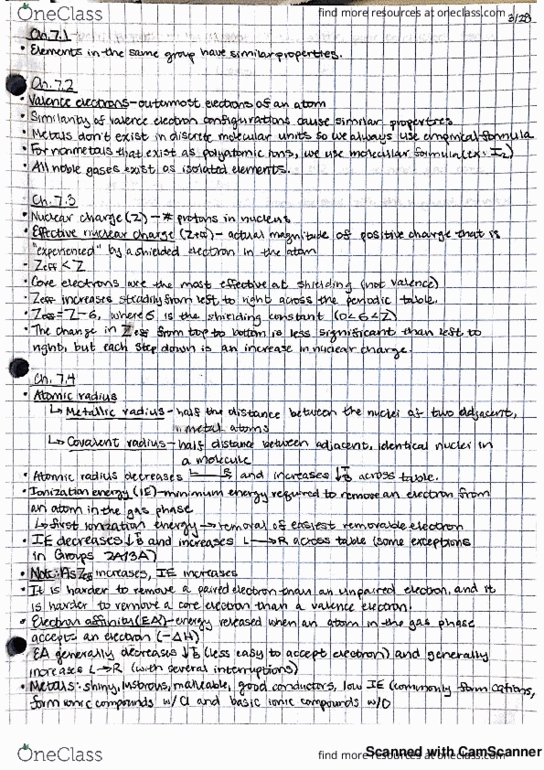 OneClass
find more resources at oneclass.com
3/28
Ch. 7.1
• Elements in the same group have similar properties.
Ch. 7.2
• Valence electrons - outermost electrons of an atom
• Similarity of valence electron configurations cause similar properties
• Metals don't exist in discrete molecular units so we always use empirical formula
• For nonmetals that exist as polyatomic ions, we use molecular formula (ex: I2)
• All noble gases exist as isolated elements.
Ch. 7.3
• Nuclear charge (Z) - # protons in nucleus
• Effective nuclear charge (Zeff) - actual magnitude of positive charge that is
"experienced" by a shielded electron in the atom
- Zeff < Z
• Core electrons are the most effective at shielding (not valence)
• Zeff increases steadily from left to right across the periodic table.
• Zeff = Z - σ, where σ is the shielding constant (0 < σ < Z)
• The change in Zeff from top to bottom is less significant than left to
right, but each step down is an increase in nuclear charge.
Ch. 7.4
• Atomic radius
↳ Metallic radius - half the distance between the nuclei of two adjacent,
metal atoms
↳ Covalent radius - half distance between adjacent, identical nuclei in
a molecule
• Atomic radius decreases L→R and increases ↓ across table.
• Ionization energy (IE) - minimum energy required to remove an electron from
an atom in the gas phase
↳ first ionization energy → removal of easiest removable electron
• IE decreases ↓ and increases L→R across table (some exceptions
in Groups 2A/3A)
• Note: As Zeff increases, IE increases
• It is harder to remove a paired electron than an unpaired electron, and it
is harder to remove a core electron than a valence electron.
• Electron affinity (EA) - energy released when an atom in the gas phase
accepts an electron (-ΔH)
EA generally decreases ↓ (less easy to accept electron) and generally
increases L→R (with several interruptions)
• Metals: shiny, lustrous, malleable, good conductors, low IE (commonly form cations,
form ionic compounds w/ Cl and basic ionic compounds w/ O
OneClass
find more resources at oneclass.com
Scanned with CamScanner